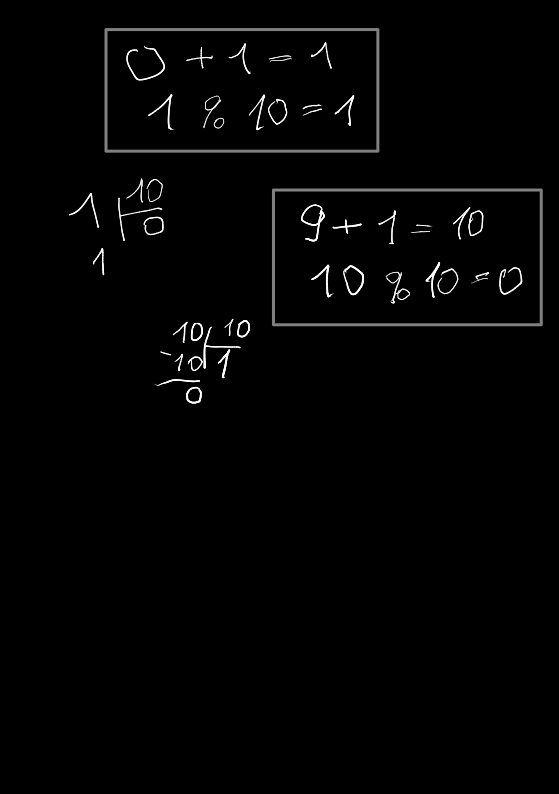 0 + 1 = 1
1 % 10 = 1
1 10
0
1
9 + 1 = 10
10 % 10 = 0
10 10
-10 1
0